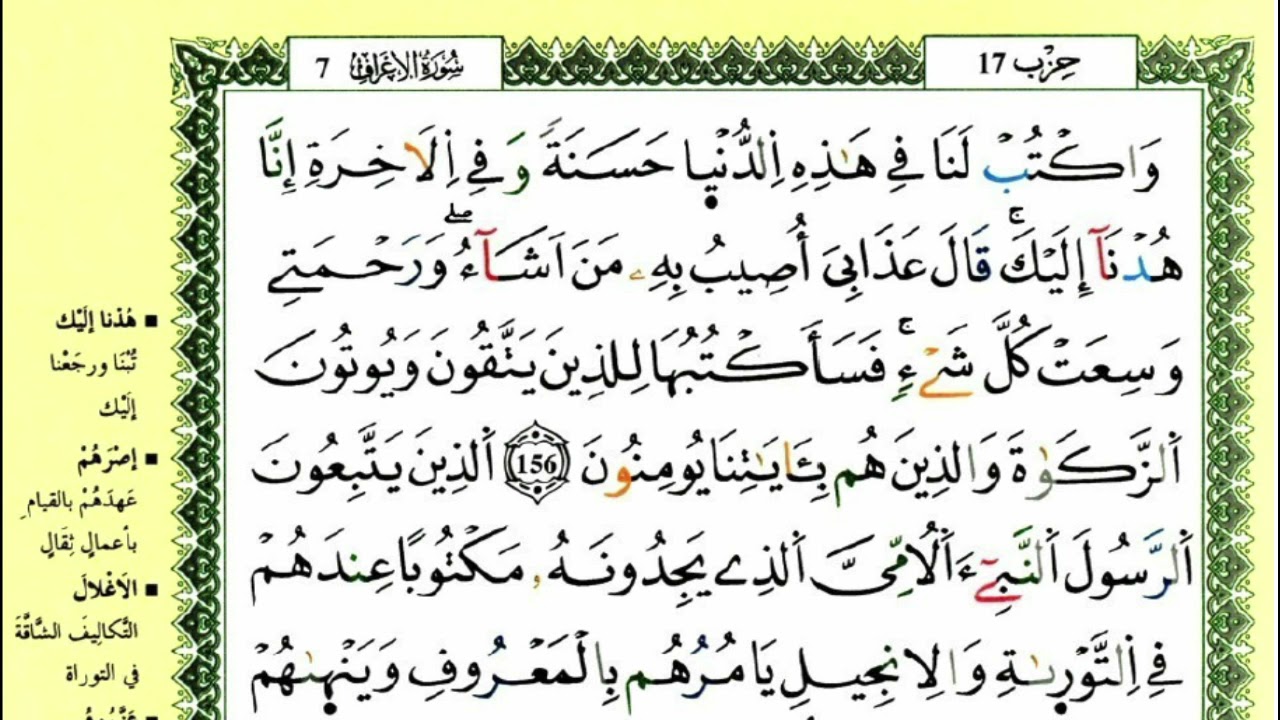 حِزْب 17
سُورَةُ الاَعْرَافِ 7
وَاكْتُبْ لَنَا فِي هَٰذِهِ اِلدُّنْيَا حَسَنَةً وَفِي اِلَاخِرَةِ إِنَّا
هُدْنَآ إِلَيْكَ قَالَ عَذَابِيَ أُصِيبُ بِهِۦ مَنَ اَشَآءُ وَرَحْمَتِے
وَسِعَتْ كُلَّ شَےْءٍ فَسَأَكْتُبُهَا لِلذِينَ يَتَّقُونَ وَيُوتُونَ
اَلزَّكَوٰةَ وَالذِينَ هُم بِـَٔايَٰتِنَا يُومِنُونَ 156 اَلذِينَ يَتَّبِعُونَ
اَلرَّسُولَ اَلنَّبِےٓءَ اَلُامِّيَّ اَلذِے يَجِدُونَهُۥ مَكْتُوبًا عِندَهُمْ
فِي اِلتَّوْر۪ىٰةِ وَالِانجِيلِ يَامُرُهُم بِالْمَعْرُوفِ وَيَنْه۪ىٰهُمْ
■ هُدْنا إلَيْك
تُبْنَا ورجَعْنا
إلَيْك
■ إصْرَهُمْ
عَهدَهُمْ بالقيامِ
بأعمالٍ ثِقَالٍ
■ الاَغْلالَ
التَّكاليفَ الشَّاقَّةَ
في التوراة